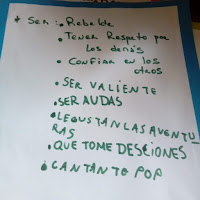 * Ser: • Rebelde
• Tener Respeto por
los demás
• Confiar en los
otros
• SER VALIENTE
• SER AUDAS
• LEGUSTAN LAS AVENTU
RAS
• QUE TOME DESCIONES
• CANTANTE POP